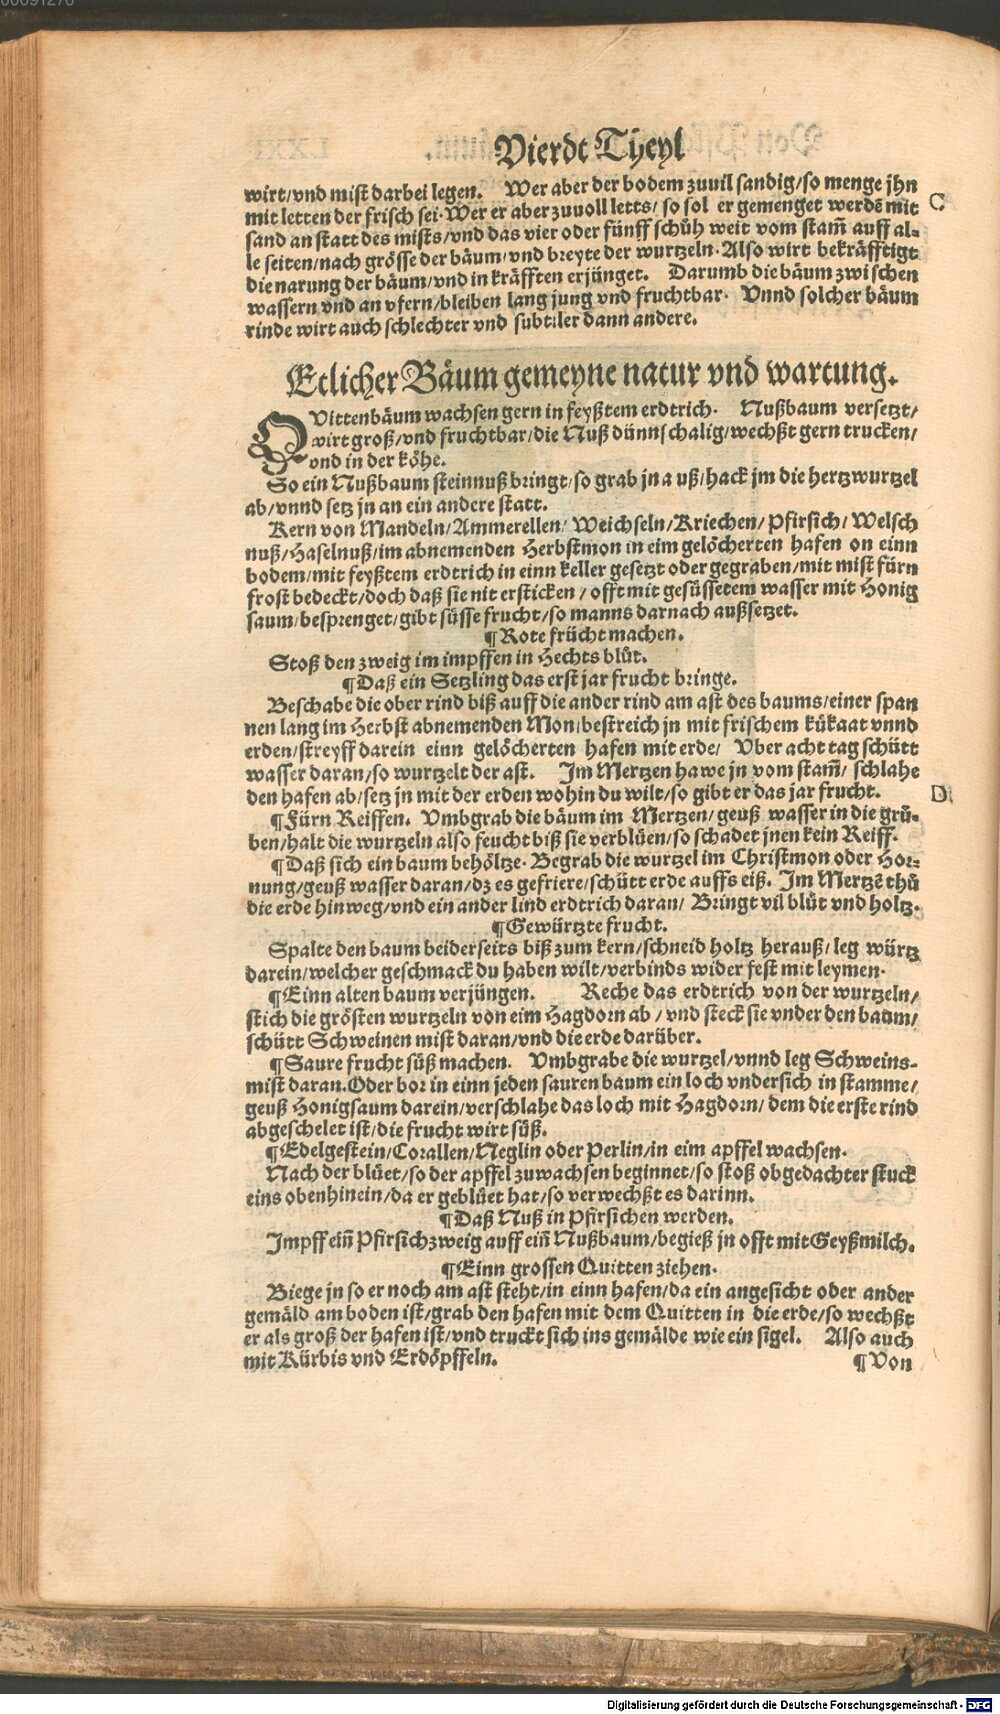 00091276
Vierdt Theyl
wirt/vnd mist darbei legen. Wer aber der bodem zuuil sandig/so menge jhn
mit letten der frisch sei. Wer er aber zuuoll letts/ so sol er gemenget werdē mit
C
sand an statt des mists/vnd das vier oder fünff schůh weit vom stam̄ auff al⸗
le seiten/nach grösse der bäum/vnd breyte der wurtzeln. Also wirt bekräfftigt
die narung der bäum/vnd in kräfften erjünget. Darumb die bäum zwischen
wassern vnd an vfern/bleiben lang jung vnd fruchtbar. Vnnd solcher bäum
rinde wirt auch schlechter vnd subtiler dann andere.
Etlicher Bäum gemeyne natur vnd wartung.
QVittenbäum wachsen gern in feyßtem erdtrich. Nußbaum versetzt/
wirt groß/vnd fruchtbar/die Nuß dünnschalig/wechßt gern trucken/
vnd in der köhe.
So ein Nußbaum steinnuß bringt/so grab jn auß/hack jm die hertzwurtzel
ab/vnnd setz jn an ein andere statt.
Kern von Mandeln/Ammerellen/ Weichseln/Kriechen/Pfirsich/Welsch
nuß/Haselnuß/im abnemenden Herbstmon in eim gelöcherten hafen on einn
bodem/mit feyßtem erdtrich in einn keller gesetzt oder gegraben/mit mist fürn
frost bedeckt/doch daß sie nit ersticken/offt mit gesüssetem wasser mit Honig
saum/besprenget/gibt süsse frucht/so manns darnach außsetzet.
¶Rote frücht machen.
Stoß den zweig im impffen in Hechts blůt.
¶Daß ein Setzling das erst jar frucht bringe.
Beschabe die ober rind biß auff die ander rind am ast des baums/einer span
nen lang im Herbst abnemenden Mon/bestreich jn mit frischem kükaat vnnd
erden/streyff darein einn gelöcherten hafen mit erde/ Vber acht tag schütt
wasser daran/so wurtzelt der ast. Im Mertzen hawe jn vom stam̄/ schlahe
den hafen ab/setz jn mit der erden wohin du wilt/so gibt er das jar frucht.
D
¶Fürn Reiffen. Vmbgrab die bäum im Mertzen/geuß wasser in die grů⸗
ben/halt die wurtzeln also feucht biß sie verblüen/so schadet jnen kein Reiff.
¶Daß sich ein baum behöltze. Begrab die wurtzel im Christmon oder Hor⸗
nung/geuß wasser daran/dz es gefriere/schütt erde auffs eiß. Im Mertzē thů
die erde hinweg/vnd ein ander lind erdtrich daran/ Bringt vil blüt vnd holtz.
¶Gewürtzte frucht.
Spalte den baum beiderseits biß zum kern/schneid holtz herauß/leg würtz
darein/welcher geschmack du haben wilt/verbinds wider fest mit leymen.
¶Einn alten baum verjüngen. Reche das erdtrich von der wurtzeln/
stich die grösten wurtzeln von eim Hagdorn ab/vnd steck sie vnder den baum/
schütt Schweinen mist daran/vnd die erde darüber.
¶Saure frucht süß machen. Vmbgrabe die wurtzel/vnnd leg Schweins⸗
mist daran. Oder bor in einn jeden sauren baum ein loch vndersich in stamme/
geuß Honigsaum darein/verschlahe das loch mit Hagdorn/dem die erste rind
abgeschelet ist/die frucht wirt süß.
¶Edelgestein/Corallen/Neglin oder Perlin/in eim apffel wachsen.
Nach der blüet/so der apffel zuwachsen beginnet/so stoß obgedachter stuck
eins obenhinein/da er geblüet hat/so verwechßt es darinn.
¶Daß Nuß in Pfirsichen werden.
Impff ein̄ Pfirsichzweig auff ein̄ Nußbaum/begieß jn offt mit Geyßmilch.
¶Einn grossen Quitten ziehen.
Biege jn so er noch am ast steht/in einn hafen/da ein angesicht oder ander
gemäld am boden ist/grab den hafen mit dem Quitten in die erde/so wechßt
er als groß der hafen ist/vnd truckt sich ins gemälde wie ein sigel. Also auch
mit Kürbis vnd Erdöpffeln.
¶Von
Digitalisierung gefördert durch die Deutsche Forschungsgemeinschaft - DFG